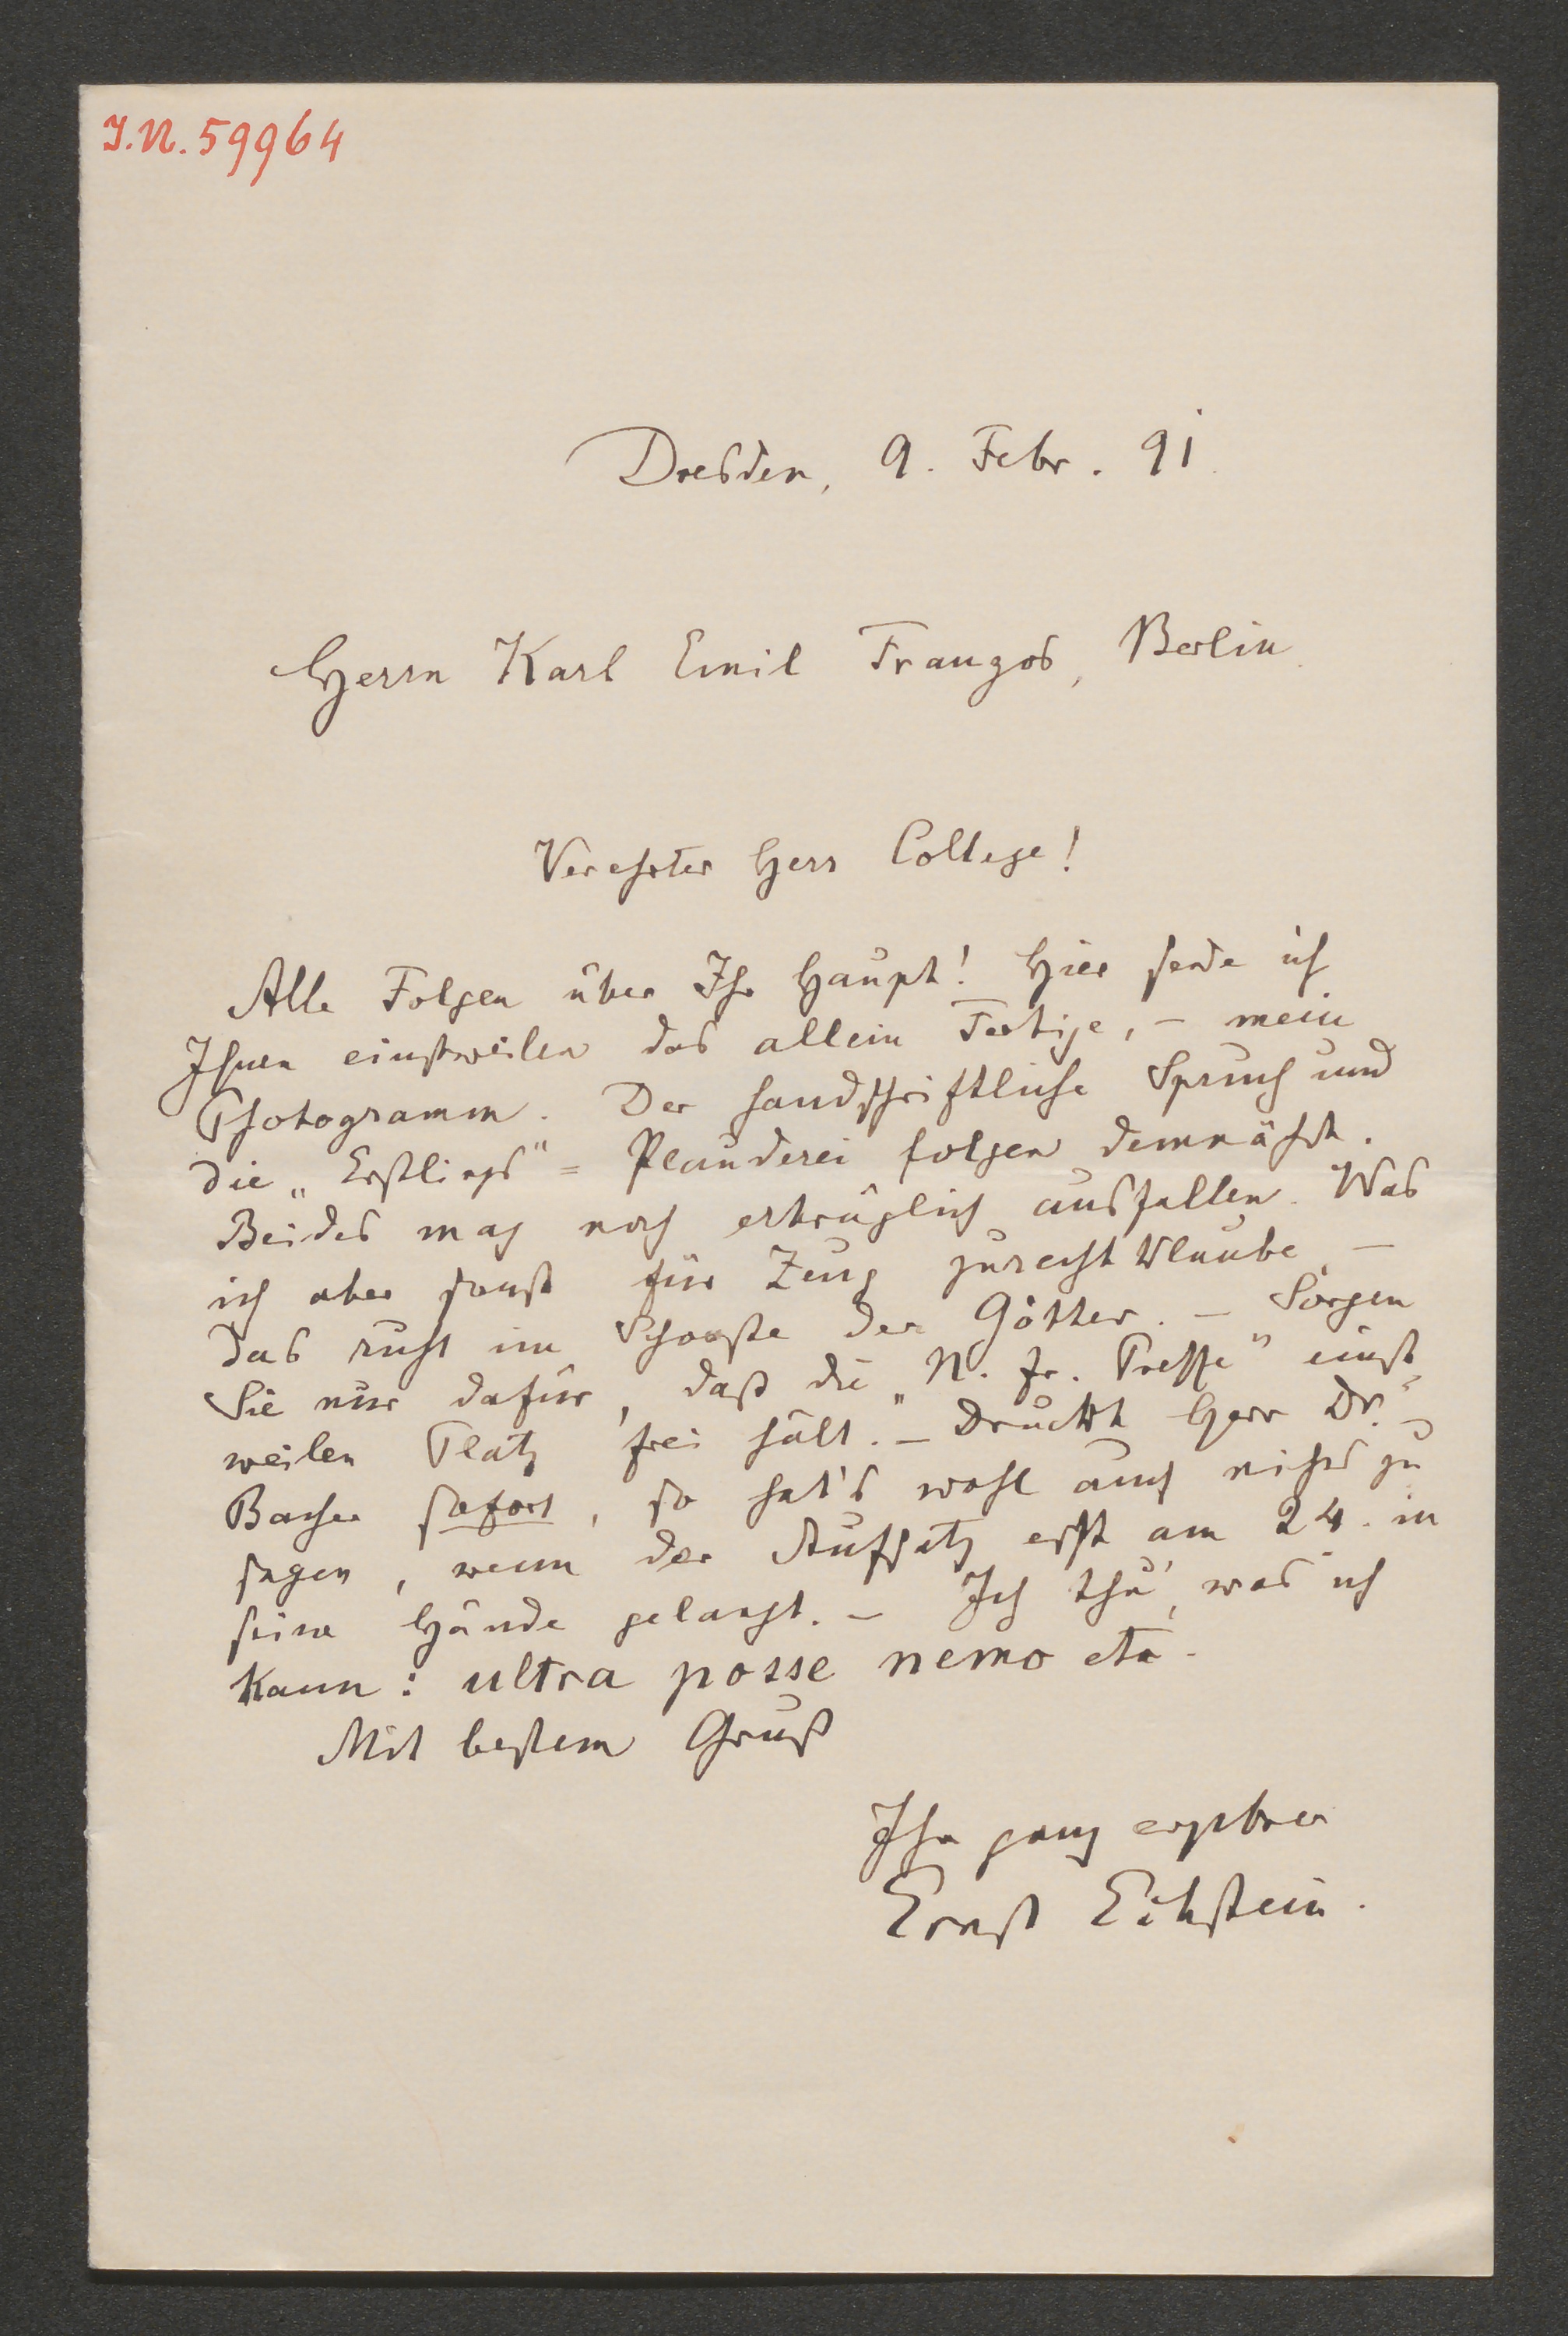 J.N. 59964
Dresden, 9. Febr. 91.
Herrn Karl Emil Franzos, Berlin.
Verehrter Herr College!
Alle Folgen über Ihr Haupt! Hier sende ich
Ihnen einstweilen das allein Fertige, – mein
Photogramm. Der handschriftliche Spruch und
die „Erstlings"=Plauderei folgen demnächst.
Beides mag noch erträglich ausfallen. Was
ich aber sonst für Zeug zurechtklaube, –
das ruht im Schooße der Götter. – Sorgen
Sie nur dafür, daß die „N. fr. Presse" einst-
weilen Platz frei hält. – Druckt Herr Dr.
Bacher sofort, so hat's wohl auch nichts zu
sagen, wenn der Aufsatz erst am 24. in
seine Hände gelangt. – Ich thu', was ich
kann: ultra posse nemo etc.
Mit bestem Gruß
Ihr ganz ergebner
Ernst Eckstein.